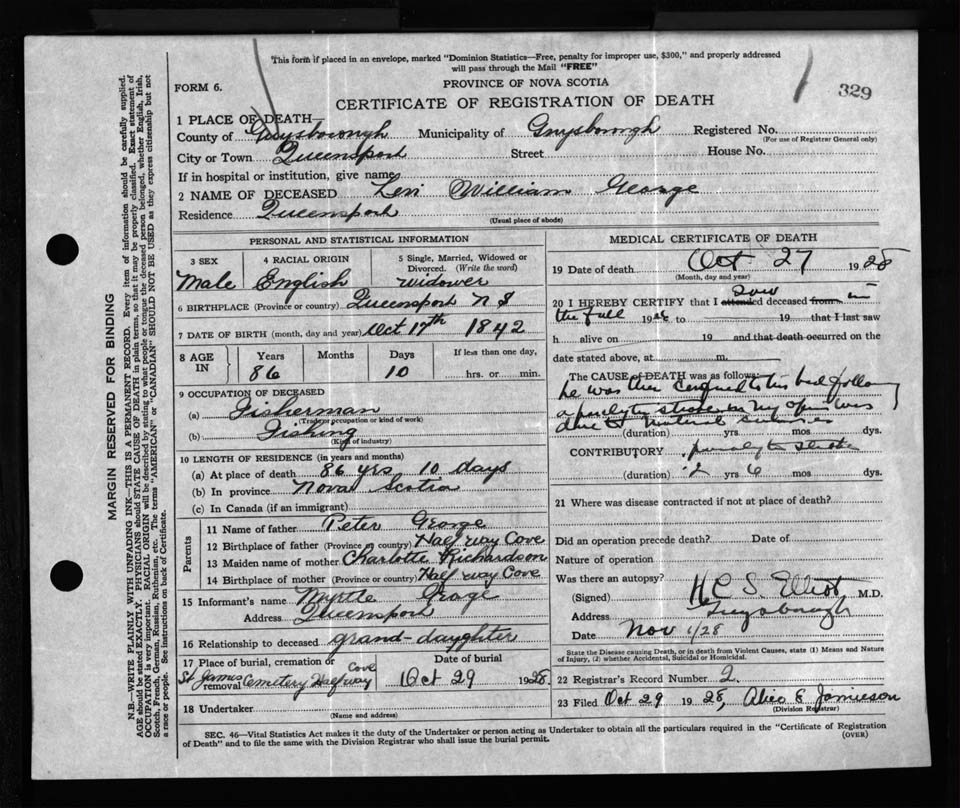 This form if placed in an envelope, marked "Dominion Statistics—Free, penalty for improper use, $300," and properly addressed
will pass through the Mail "FREE"
FORM 6.
PROVINCE OF NOVA SCOTIA
329
CERTIFICATE OF REGISTRATION OF DEATH
1 PLACE OF DEATH
County of Guysborough Municipality of Guysborough Registered No.
(For use of Registrar General only)
City or Town Queensport Street House No.
If in hospital or institution, give name
2 NAME OF DECEASED Levi William George
Residence Queensport
(Usual place of abode)
PERSONAL AND STATISTICAL INFORMATION
3 SEX 4 RACIAL ORIGIN 5 Single, Married, Widowed or
Divorced. (Write the word)
Male English Widower
6 BIRTHPLACE (Province or country) Queensport N S
7 DATE OF BIRTH (month, day and year) Oct 17th 1842
8 AGE IN Years Months Days If less than one day,
86 10 hrs. or min.
9 OCCUPATION OF DECEASED
(a) Fisherman
(Trade or occupation or kind of work)
(b) Fishing
(Kind of industry)
10 LENGTH OF RESIDENCE (in years and months)
(a) At place of death 86 yrs 10 days
(b) In province Nova Scotia
(c) In Canada (if an immigrant)
Parents
11 Name of father Peter George
12 Birthplace of father (Province or country) Half way Cove
13 Maiden name of mother Charlotte Richardson
14 Birthplace of mother (Province or country) Half way Cove
15 Informant's name Myrtle George
Address Queensport
16 Relationship to deceased grand-daughter
17 Place of burial, cremation or removal Date of burial
St James Cemetery Halfway Cove Oct 29 1928.
18 Undertaker
(Name and address)
MEDICAL CERTIFICATE OF DEATH
19 Date of death Oct 27 1928
(Month, day and year)
20 I HEREBY CERTIFY that I attended saw deceased from in
the fall 1926 to 19 that I last saw
h alive on 19 and that death occurred on the
date stated above, at m.
The CAUSE of DEATH was as follows:
he was then confined to his bed following
a paralytic stroke in my opin was
due to natural
(duration) yrs mos dys.
CONTRIBUTORY paralytic stroke
(duration) 2 yrs 6 mos dys.
21 Where was disease contracted if not at place of death?
Did an operation precede death? Date of
Nature of operation
Was there an autopsy?
(Signed) H C S Elliot M.D.
Address Guysborough
Date Nov 1/28
State the Disease causing Death, or in death from Violent Causes, state (1) Means and Nature
of Injury, (2) whether Accidental, Suicidal or Homicidal.
22 Registrar's Record Number 2.
23 Filed Oct 29 1928, Alice E Jamieson
(Division Registrar)
SEC. 46—Vital Statistics Act makes it the duty of the Undertaker or person acting as Undertaker to obtain all the particulars required in the "Certificate of Registration
of Death" and to file the same with the Division Registrar who shall issue the burial permit.
(OVER)
MARGIN RESERVED FOR BINDING
N.B.—WRITE PLAINLY WITH UNFADING INK—THIS IS A PERMANENT RECORD. Every item of information should be carefully supplied.
AGE should be stated EXACTLY. PHYSICIANS should STATE CAUSE OF DEATH in plain terms, so that it may be properly classified. Exact statement of
OCCUPATION is very important. RACIAL ORIGIN will be described by stating to what people or tongue the deceased person belonged, whether English, Irish,
Scotch, French, German, Russian, Ruthenian, etc. The terms "AMERICAN" or "CANADIAN" SHOULD NOT BE USED as they express citizenship but not
a race or people. See instructions on back of Certificate.